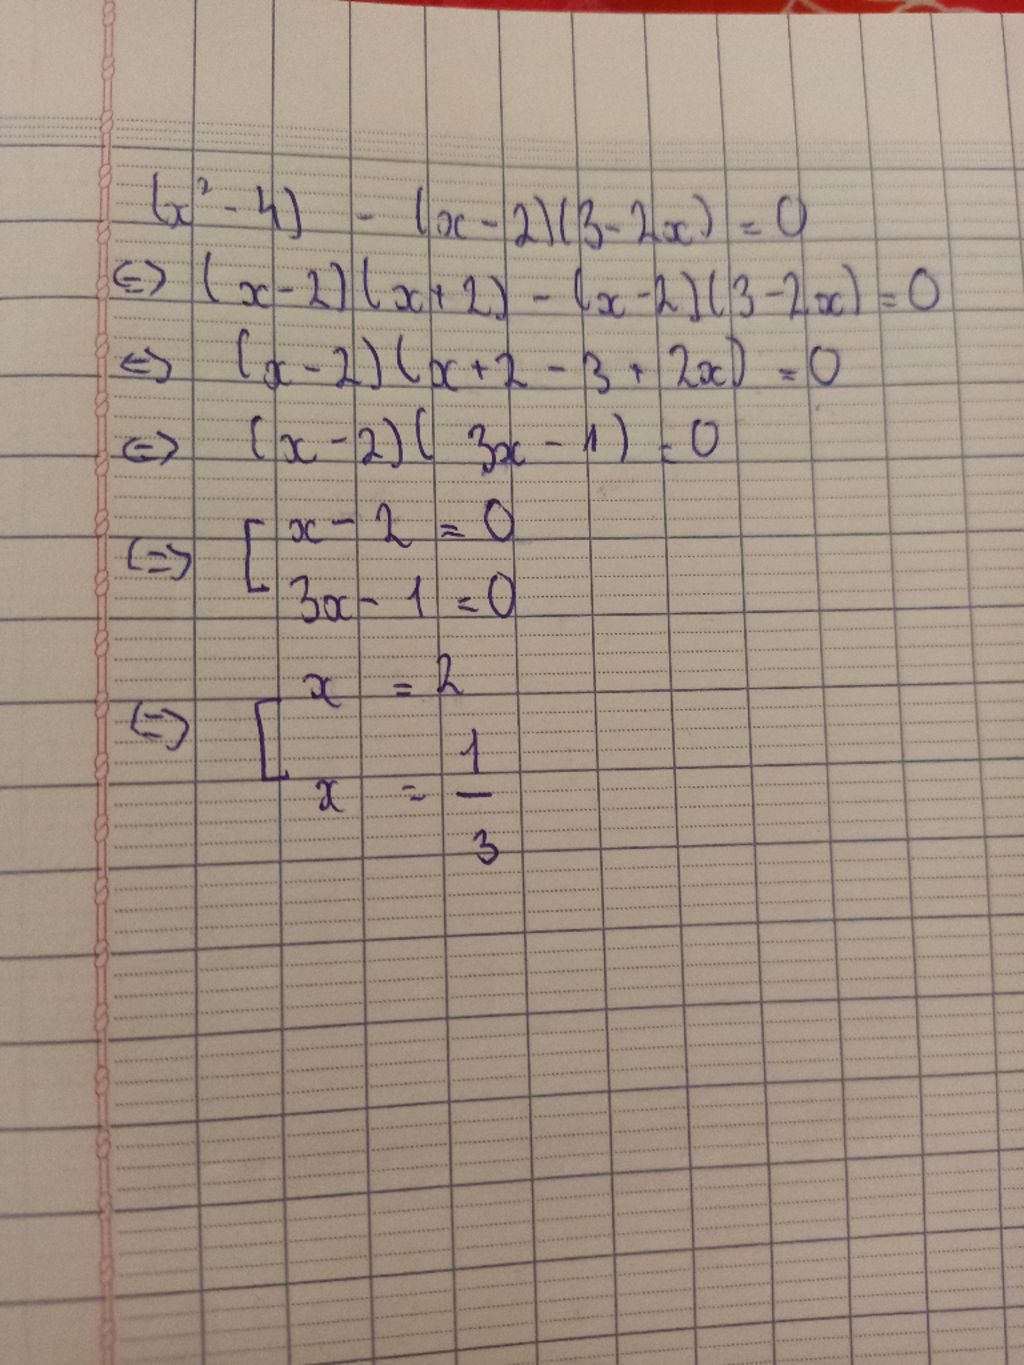 (x² - 4) - (x - 2)(3 - 2x) = 0
<=> (x - 2)(x + 2) - (x - 2)(3 - 2x) = 0
<=> (x - 2)(x + 2 - 3 + 2x) = 0
<=> (x - 2)( 3x - 1) = 0
<=> [ x - 2 = 0
3x - 1 = 0
<=> [ x = 2
x = 1/3